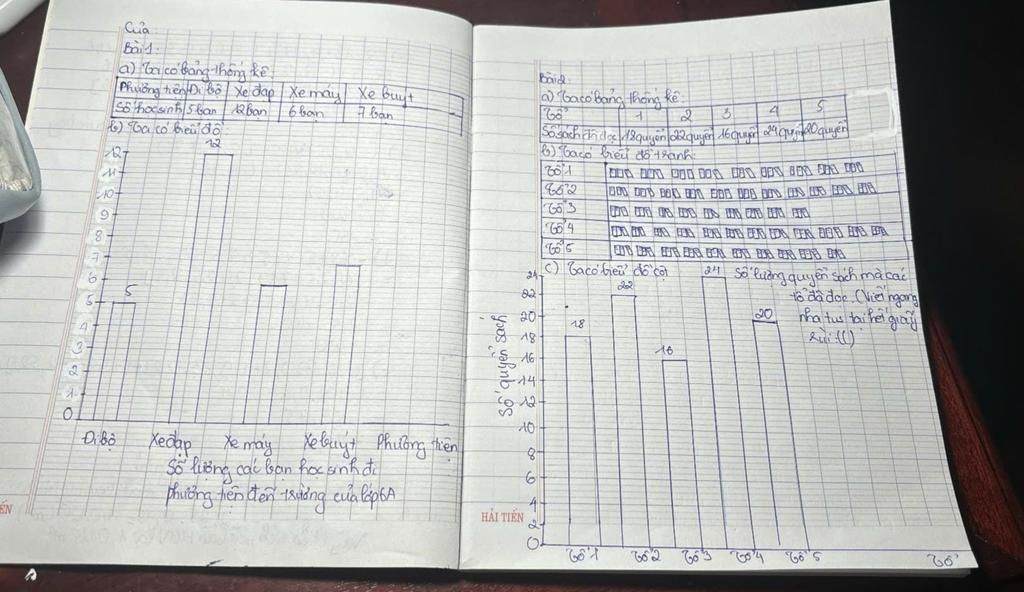 Của
Bài 1:
a) Ta có bảng thống kê:
Phương tiện Đi bộ Xe đạp Xe máy Xe buýt
Số học sinh 5 bạn 12 bạn 6 bạn 7 bạn
b) Ta có biểu đồ:
12
12
11
10
9
8
7
6
5
5
4
3
2
1
0
Đi bộ Xe đạp Xe máy Xe buýt Phương tiện
Số lượng các bạn học sinh đi
phương tiện đến trường của lớp 6A
Bài 2
a) Ta có bảng thống kê:
Tổ 1 2 3 4 5
Số sách đã đọc 18 quyển 22 quyển 16 quyển 24 quyển 20 quyển
b) Ta có biểu đồ tranh:
Tổ 1
Tổ 2
Tổ 3
Tổ 4
Tổ 5
c) Ta có biểu đồ cột
Số lượng quyển sách mà các
tổ đã đọc. (Viết ngang
nha tus tại hết giấy
rùi :(()
Số quyển sách
24
22
20
18
16
14
12
10
8
6
4
2
0
18
22
16
24
20
Tổ 1 Tổ 2 Tổ 3 Tổ 4 Tổ 5 Tổ
HẢI TIẾN
ẾN